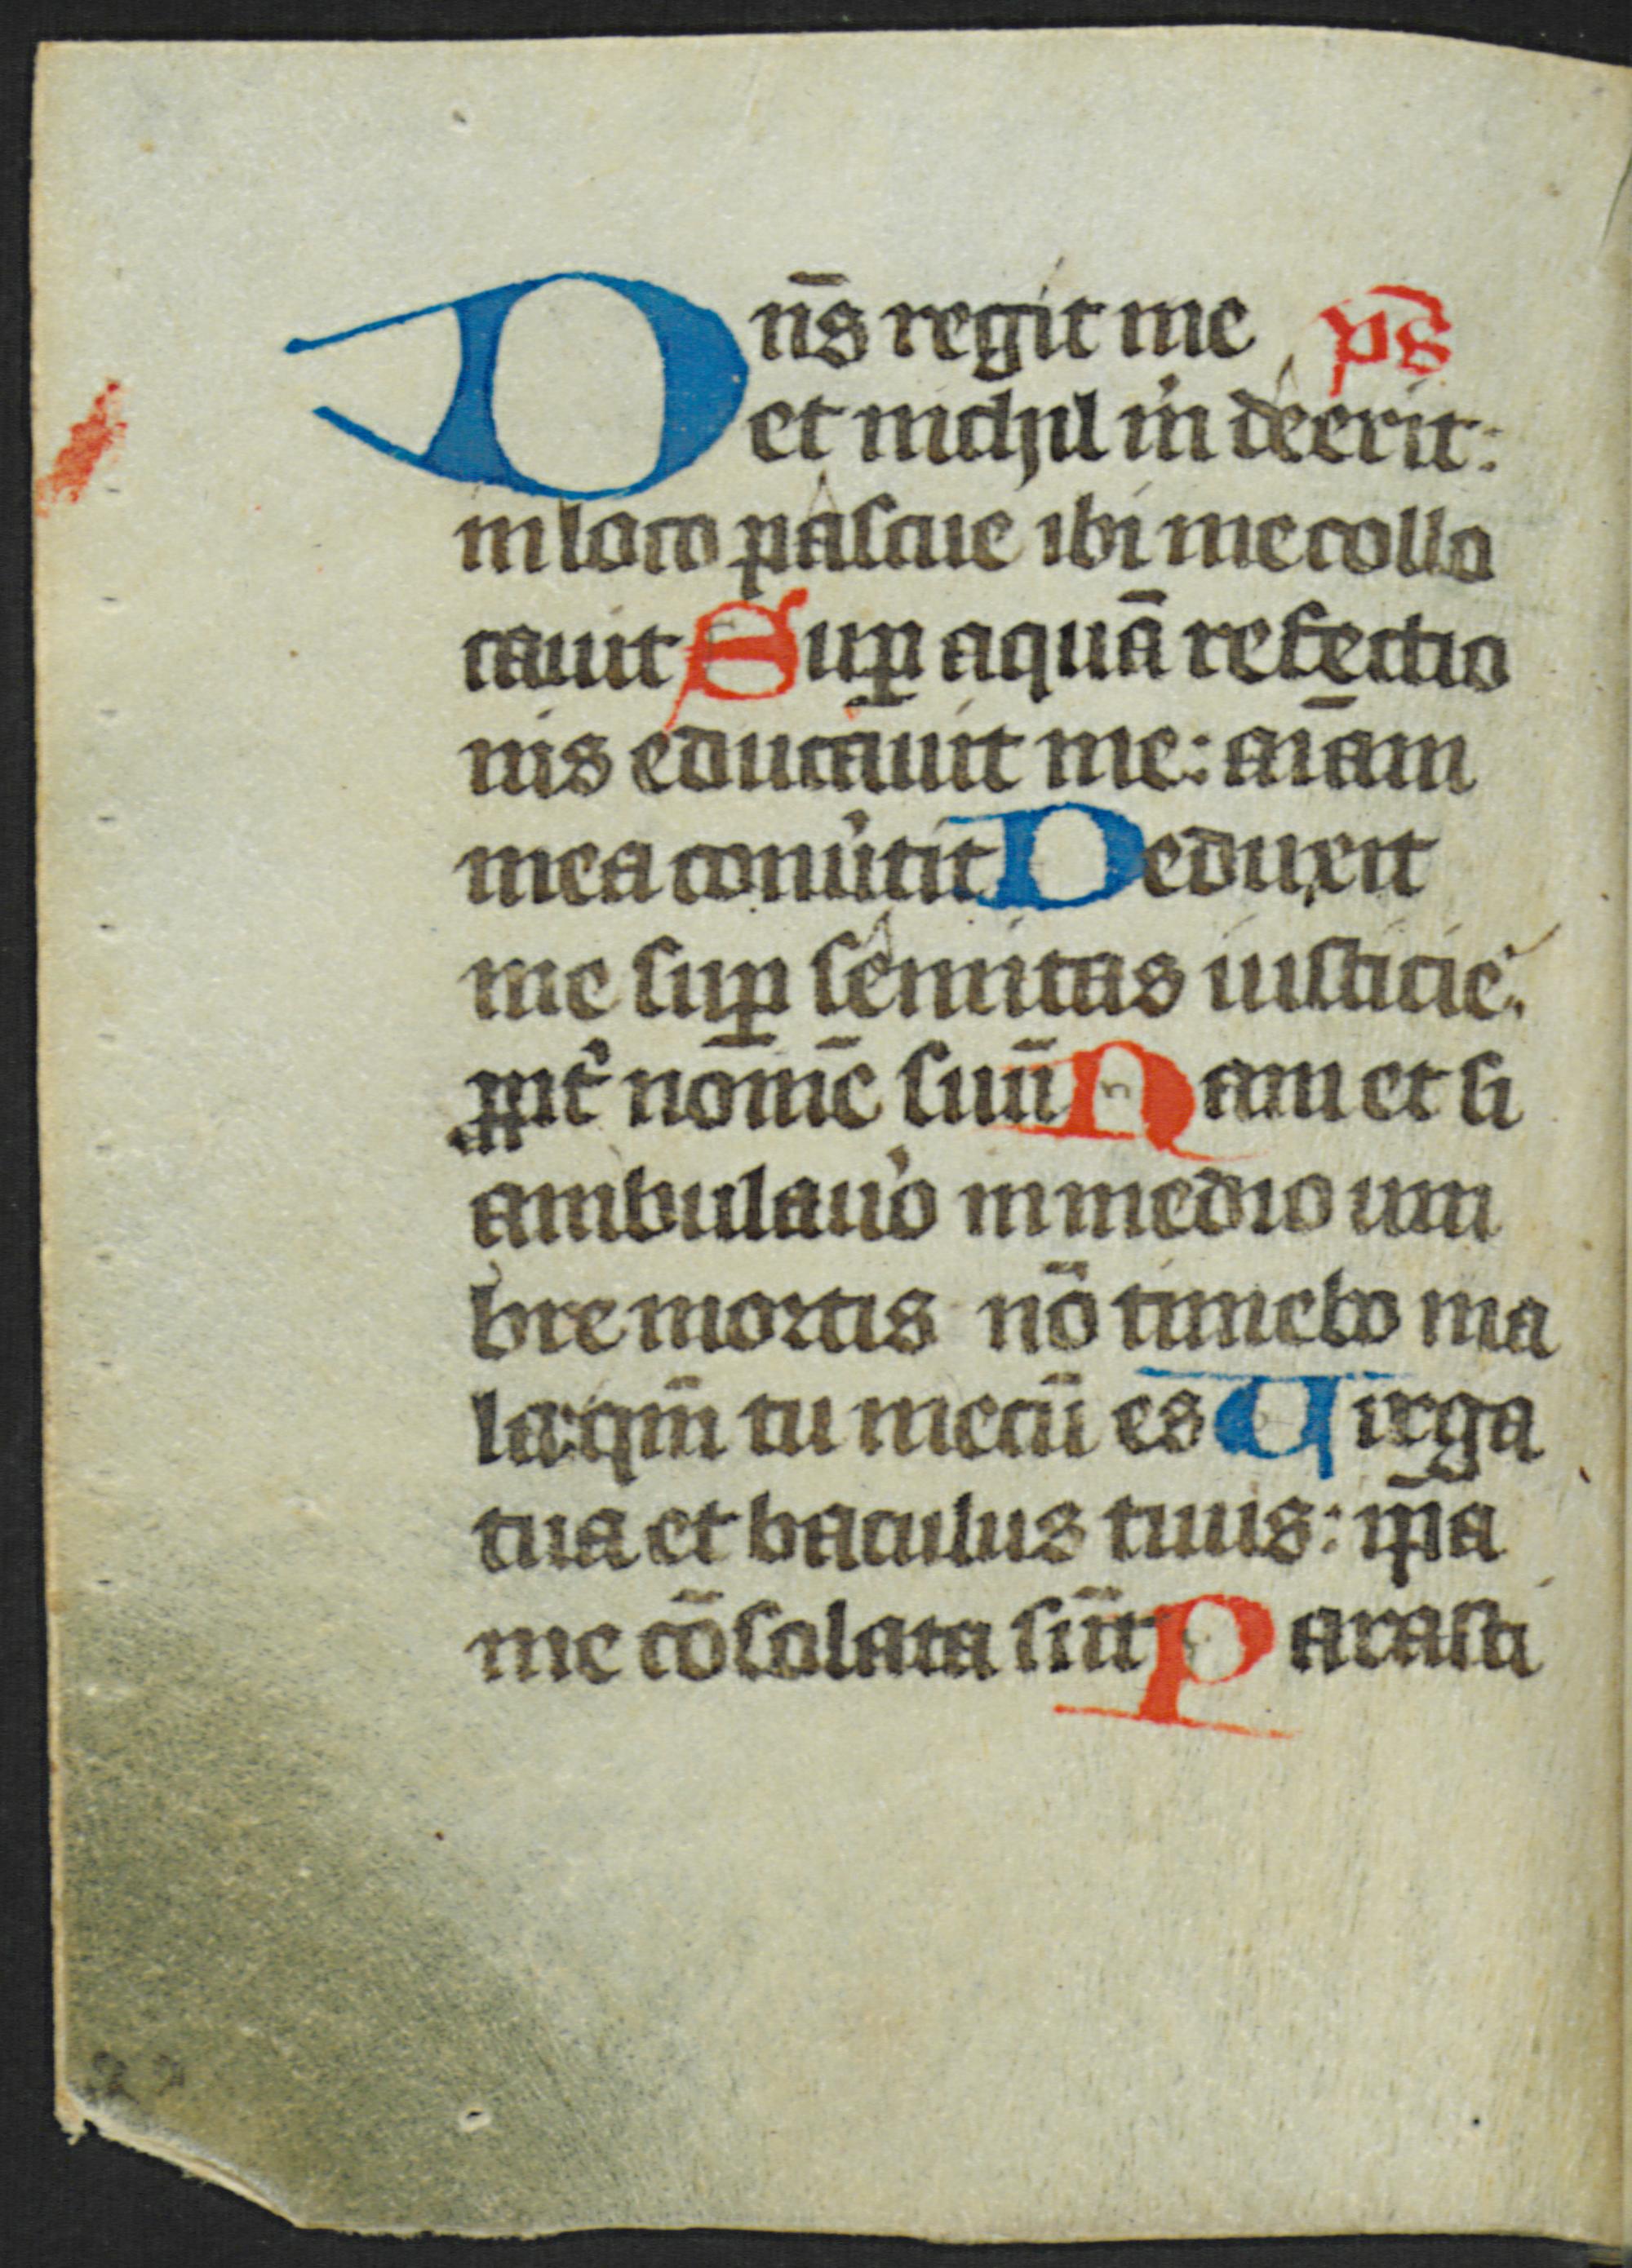 Dn̄s regit me ps̄
et nichil m̍ deerit:
in loco pascue ibi me collo
cauit Sup̱ aquā refectio
nis educauit me: aīam
mea conu̍tit Deduxit
me sup̱ semitas iusticie:
ꝓpt̍ nom̄e suū Nam et si
ambulau̍o in medio um
bre mortis nō timebo ma
la: qm̄ tu mecū es Uirga
tua et baculus tuus: ip̄a
me cōsolata sūt Parasti